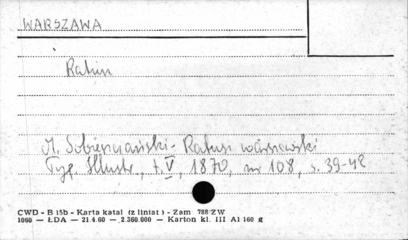 WARSZAWA
Ratusz
M. Sobieszczański - Ratusz warszawski
Tyg. Illustr., t. V, 1870, nr 108, s. 39-42
CWD - B 15b - Karta katal (z liniat) - Zam 788/ZW
1060 — ŁDA — 21.4.60 — 2.360.000 — Karton kl. III A1 160 g